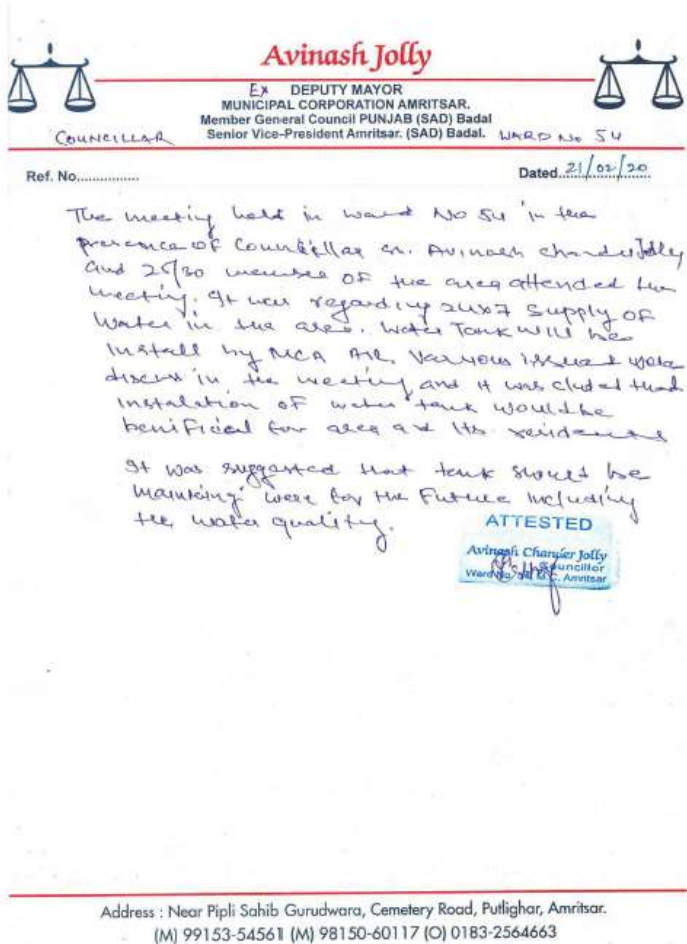 Avinash Jolly
Ex DEPUTY MAYOR
MUNICIPAL CORPORATION AMRITSAR.
Member General Council PUNJAB (SAD) Badal
COUNCILLAR Senior Vice-President Amritsar. (SAD) Badal. WARD No 54
Ref. No................ Dated 21/02/20
The meeting held in ward No 54 in the
presence of Councillar Sh. Avinash chander Jolly
and 25/30 member OF the area attended the
meeting. It was regarding 24x7 Supply OF
Water in the area. Water Tank will be
install by MCA ASR. Various issues were
discuss in the meeting and it was cluded that
instalation of water tank would be
benificial for area and its residents
It was suggested that tank should be
maintaing were for the Future including
the water quality.
ATTESTED
Avinash Chander Jolly
Councillor
Ward No. 54 M.C. Amritsar
Address : Near Pipli Sahib Gurudwara, Cemetery Road, Putlighar, Amritsar.
(M) 99153-54561 (M) 98150-60117 (O) 0183-2564663